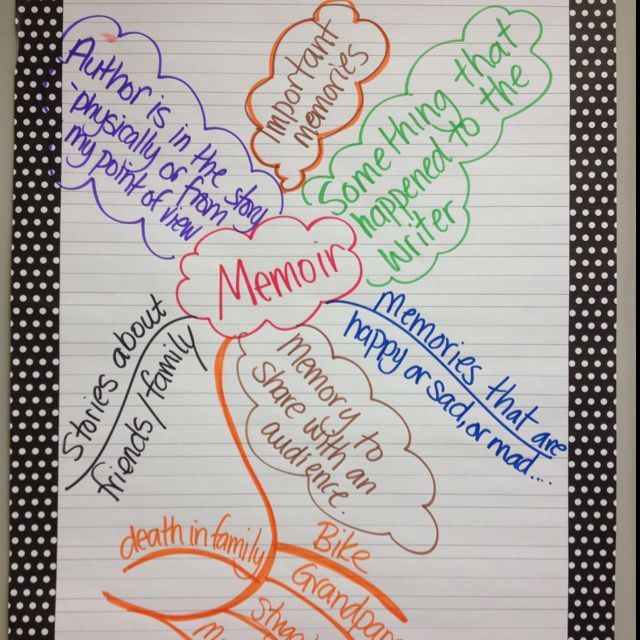 Author is in the story
-physically or from
my point of view
Important
memories
Something that
happened to the
writer
Memoir
Stories about
friends/family
Memories that are
happy or sad, or mad...
memory to
share with an
audience.
death in family
Bike